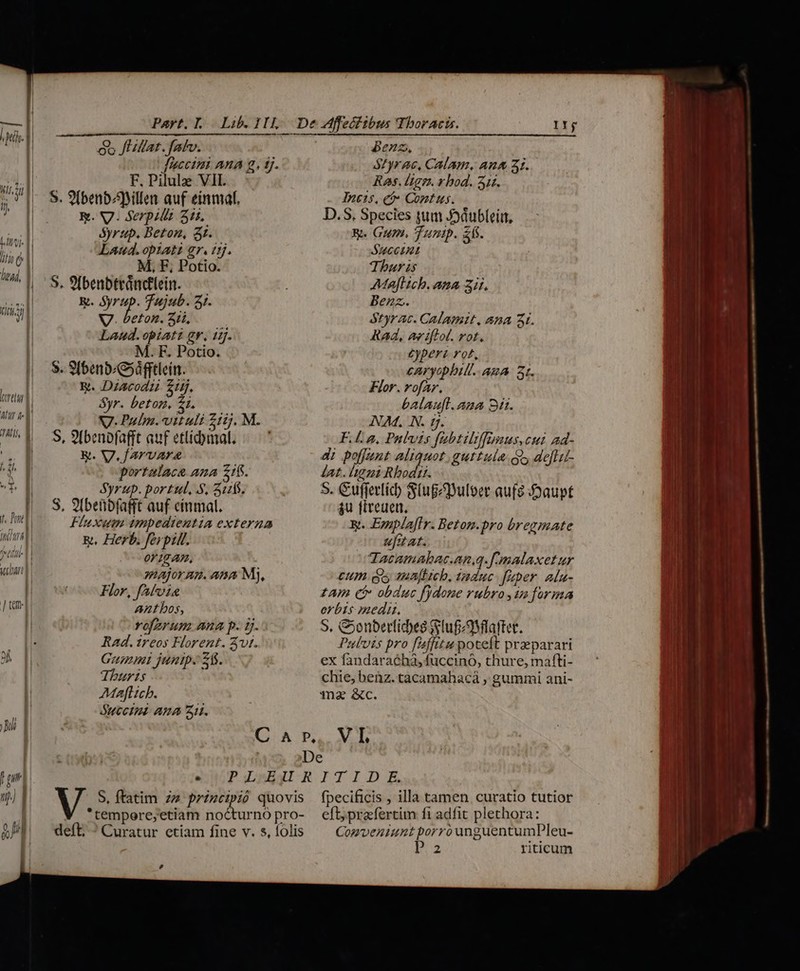 Part. I. Lib. III. De Affectibus Thoracis. 115
℥o stillat. salv.
succini ana g. ij.
F. Pilulæ VII.
S. Abend-Pillen auf einmal.
℞. ▽. Serpilli ℥ii.
Syrup. Beton. ℥i.
Laud. opiati gr. iij.
M. F. Potio.
S. Abendtråncklein.
℞. Syrup. Jujub. ℥i.
▽. beton. ℥ii.
Laud. opiati gr. iij.
M. F. Potio.
S. Abend-Såfftlein.
℞. Diacodii ℥iij.
Syr. beton. ℥i.
▽. Pulm. vituli ℥iij. M.
S. Abendsafft auf etlichmal.
℞. ▽. parvaræ
portulaca ana ℥iß.
Syrup. portul. S. ℥iiß.
S. Abendsafft auf einmal.
Fluxum impedientia externa
℞. Herb. serpill.
origan.
majoran. ana Mj.
Flor. salviæ
anthos,
rosarum ana p. ij.
Rad. ireos Florent. ʒvi.
Gummi junip. ℥ß.
Thuris
Mastich.
Succini ana ʒii.
Benz.
Styrac. Calam. ana ʒi.
Ras. lign. rhod. ʒii.
Incis. & Contus.
D. S. Species zum Häublein.
℞. Gum. Junip. ℥ß.
Succini
Thuris
Mastich. ana ʒii.
Benz.
Styrac. Calamit. ana ʒi.
Rad. aristol. rot.
cyperi rot.
caryophill. ana ʒi.
Flor. rosar.
balaust. ana ℈ii.
NM. N. ij.
F. L. a. Pulvis subtilissimus, cui ad-
di possunt aliquot guttulæ ℥o destil-
lat. ligni Rhodii.
S. Eusserlich Fluß-Pulver aufs Haupt
zu streuen.
℞. Emplastr. Beton. pro bregmate
usitat.
Tacamahac. an. q. s. malaxetur
cum ℥o mastich. induc super alu-
tam & obduc sydone rubro, in forma
orbis medii.
S. Sonderliches Fluß-Pflaster.
Pulvis pro suffitu potest præparari
ex sandarachâ, succinô, thure, masti-
chie, benz. tacamahacâ, gummi ani-
mæ &c.
CAP. VI.
De
PLEURITIDE.
V. S. statim in principiô quovis
tempore, etiam nocturnô pro-
dest. Curatur etiam sine v. s. solis
specificis, illa tamen curatio tutior
est, præsertim si adsit plethora:
Conveniunt porrò unguentum Pleu-
P 2 riticum